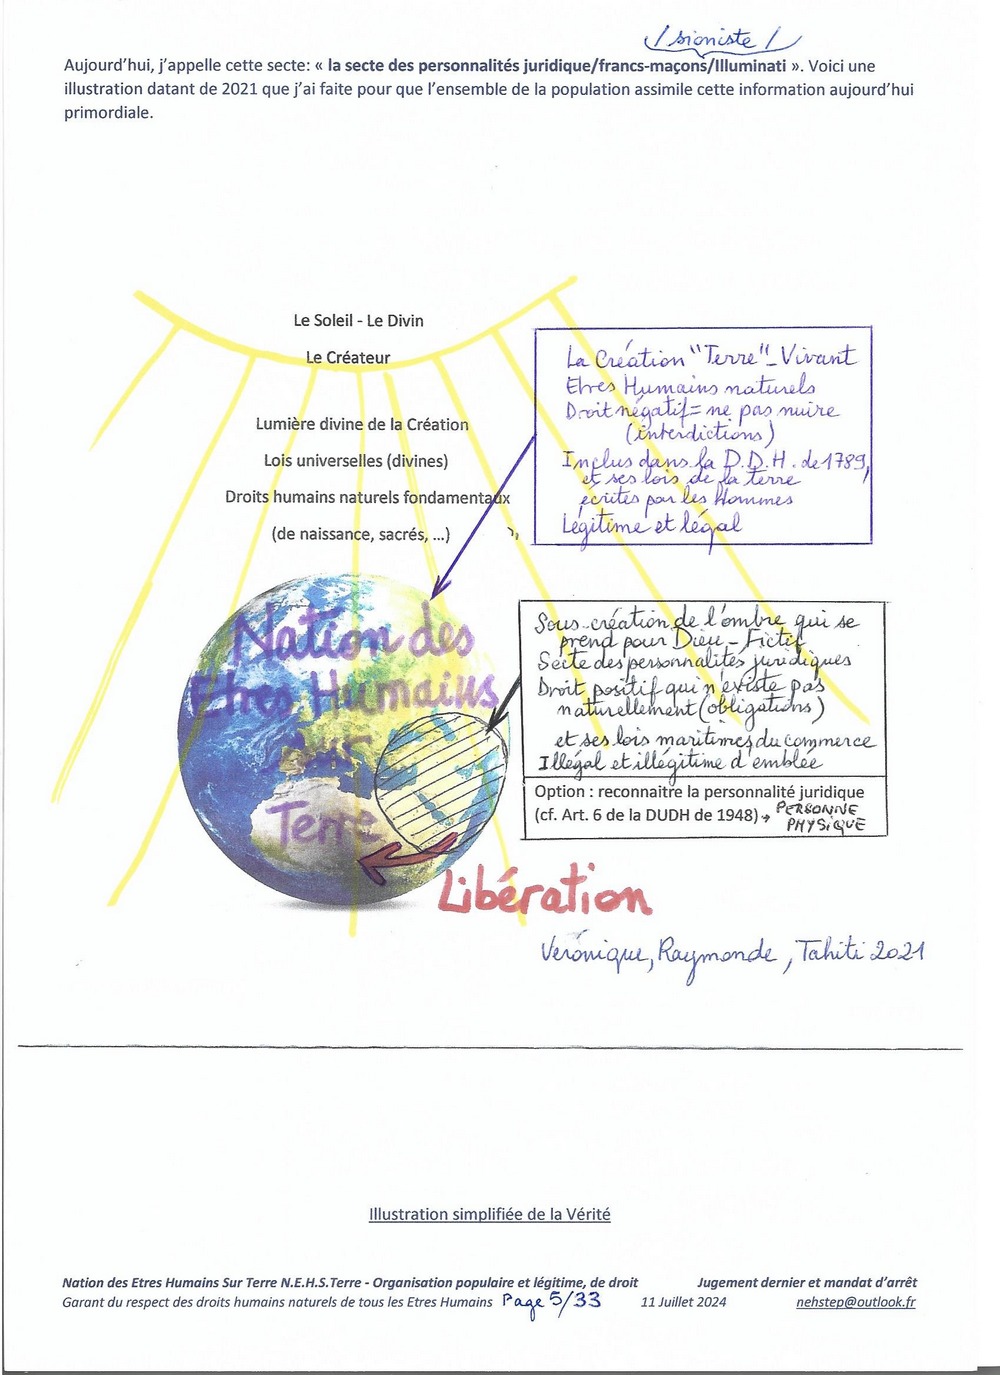 / sioniste /
Aujourd'hui, j'appelle cette secte: « la secte des personnalités juridique/francs-maçons/Illuminati ». Voici une
illustration datant de 2021 que j'ai faite pour que l'ensemble de la population assimile cette information aujourd'hui
primordiale.
Le Soleil - Le Divin
Le Créateur
Lumière divine de la Création
Lois universelles (divines)
Droits humains naturels fondamentaux
(de naissance, sacrés, ...)
La Création "Terre" - Vivant
Etres Humains naturels
Droit négatif = ne pas nuire
(interdictions)
Inclus dans la D.D.H. de 1789,
et ses lois de la terre
écrites par les Hommes
Légitime et légal
Nation des
Etres Humains
sur
Terre
Sous-création de l'ombre qui se
prend pour Dieu - Fictif
Secte des personnalités juridiques
Droit positif qui n'existe pas
naturellement (obligations)
et ses lois maritimes du commerce
Illégal et illégitime d'emblée
Option : reconnaitre la personnalité juridique
(cf. Art. 6 de la DUDH de 1948) → PERSONNE
PHYSIQUE
Libération
Véronique, Raymonde, Tahiti 2021
Illustration simplifiée de la Vérité
Nation des Etres Humains Sur Terre N.E.H.S.Terre - Organisation populaire et légitime, de droit Jugement dernier et mandat d'arrêt
Garant du respect des droits humains naturels de tous les Etres Humains Page 5/33 11 Juillet 2024 nehstep@outlook.fr